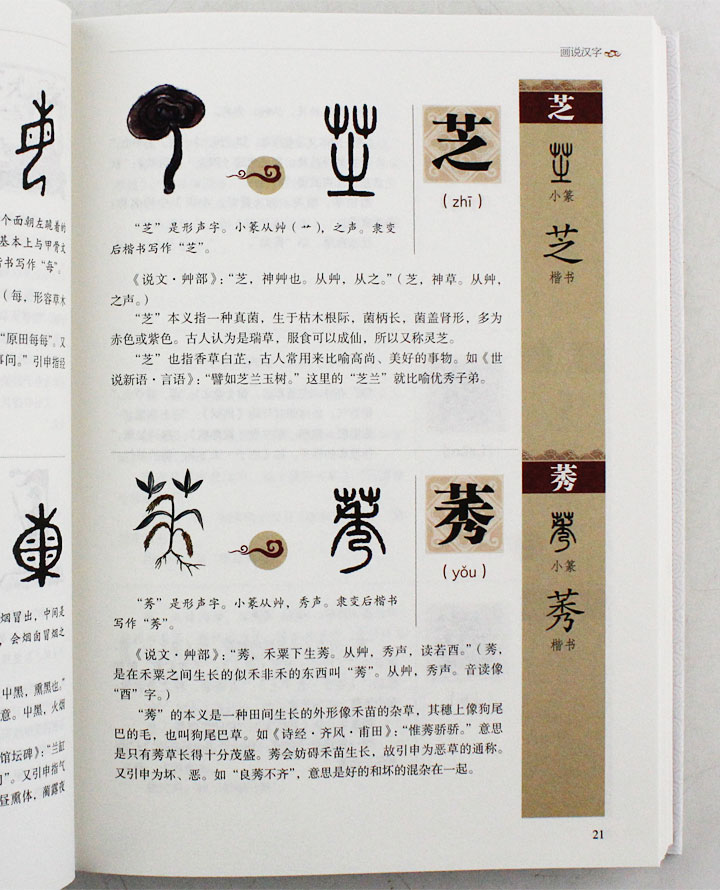 个面朝左跪着的
基本上与甲骨文
书写作“每”。
（每，形容草木
“原田每每”。又
事问。”引申指经
烟冒出，中间是
，会烟囱冒烟之
中黑，熏黑也。”
意。中黑，火烟
馆坛碑》：“兰缸
”。又引申指气
昼熏体，蔺露夜
画说汉字
芝
（zhī）
“芝”是形声字。小篆从艸（艹），之声。隶变
后楷书写作“芝”。
《说文·艸部》：“芝，神艸也。从艸，从之。”（芝，神草。从艸，
之声。）
“芝”本义指一种真菌，生于枯木根际，菌柄长，菌盖肾形，多为
赤色或紫色。古人认为是瑞草，服食可以成仙，所以又称灵芝。
“芝”也指香草白芷，古人常用来比喻高尚、美好的事物。如《世
说新语·言语》：“譬如芝兰玉树。”这里的“芝兰”就比喻优秀子弟。
芝
小篆
芝
楷书
莠
（yǒu）
“莠”是形声字。小篆从艸，秀声。隶变后楷书
写作“莠”。
《说文·艸部》：“莠，禾粟下生莠。从艸，秀声，读若酉。”（莠，
是在禾粟之间生长的似禾非禾的东西叫“莠”。从艸，秀声。音读像
“酉”字。）
“莠”的本义是一种田间生长的外形像禾苗的杂草，其穗上像狗尾
巴的毛，也叫狗尾巴草。如《诗经·齐风·甫田》：“惟莠骄骄。”意思
是只有莠草长得十分茂盛。莠会妨碍禾苗生长，故引申为恶草的通称。
又引申为坏、恶。如“良莠不齐”，意思是好的和坏的混杂在一起。
莠
小篆
莠
楷书
21